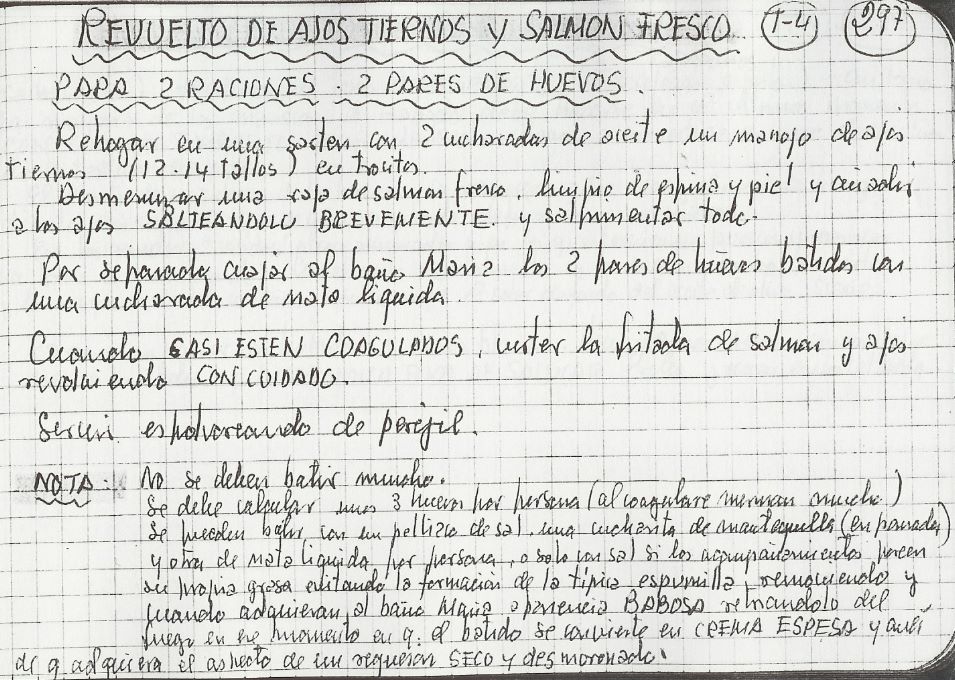 REVUELTO DE AJOS TIERNOS Y SALMON FRESCO. (T-4) 297
PARA 2 RACIONES. 2 PARES DE HUEVOS.
Rehogar en una sarten con 2 cucharadas de aceite un manojo de ajos
tiernos (12.14 tallos) en trocitos.
Desmenuzar una raja de salmon fresco, limpio de espina y piel y añadir
a los ajos SALTEANDOLO BREVEMENTE. y salpimentar todo.
Por separado cuajar al baño Maria los 2 pares de huevos batidos con
una cucharada de nata liquida.
Cuando CASI ESTEN COAGULADOS, meter la fritada de salmon y ajos
revolviendo CON CUIDADO.
Servir espolvoreando de perejil.
NOTA: No se deben batir mucho.
Se debe calcular unos 3 huevos por persona (al coagularse merman mucho)
Se pueden batir con un pellizco de sal, una cucharita de mantequilla (en pomada)
y otra de nata liquida, por persona, o solo con sal si los acompañamientos poseen
su propia grasa evitando la formación de la tipica espumilla, removiendo y
cuando adquieran al baño Maria apariencia BABOSA retirandolo del
fuego en ese momento en q. el batido se convierte en CREMA ESPESA y antes
de q adquiera el aspecto de un requeson SECO y desmoronado.